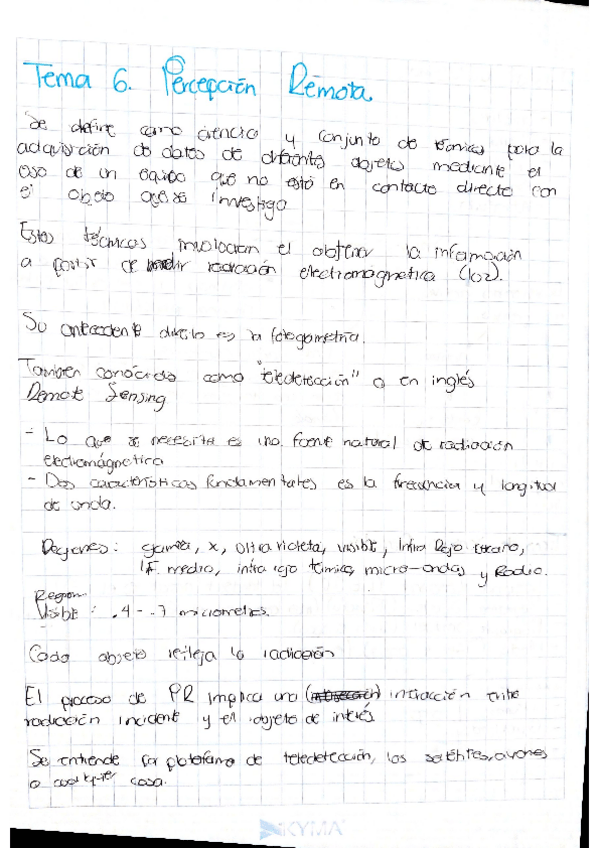 Tema 6. Percepción Remota.
Se define como ciencia y conjunto de técnicas para la
adquisición de datos de diferentes objetos mediante el
uso de un equipo que no está en contacto directo con
el objeto que se investiga
Estas técnicas involucran el obtener la información
a partir de medir radiación electromagnetica (luz).
Su antecedente directo es la fotogometría.
Tambien conocida como "teledetección" o en inglés
Remote Sensing
- Lo que se necesita es una fuente natural de radiación
electromágnetica
- Dos características fundamentales es la frecuencia y longitud
de onda.
Regiones: gamma, x, ultravioleta, visible, Infra Rojo cercano,
IF. medio, infrarojo termico, micro-ondas y Radio.
Region
Visible : .4 - .7 micrometros.
Cada objeto refleja la radiación
El proceso de PR implica una interacción entre
radiación incident y el objeto de interés
Se entiende la plataforma de teledetección, los satélites, aviones
o cualquier cosa.
KYMA